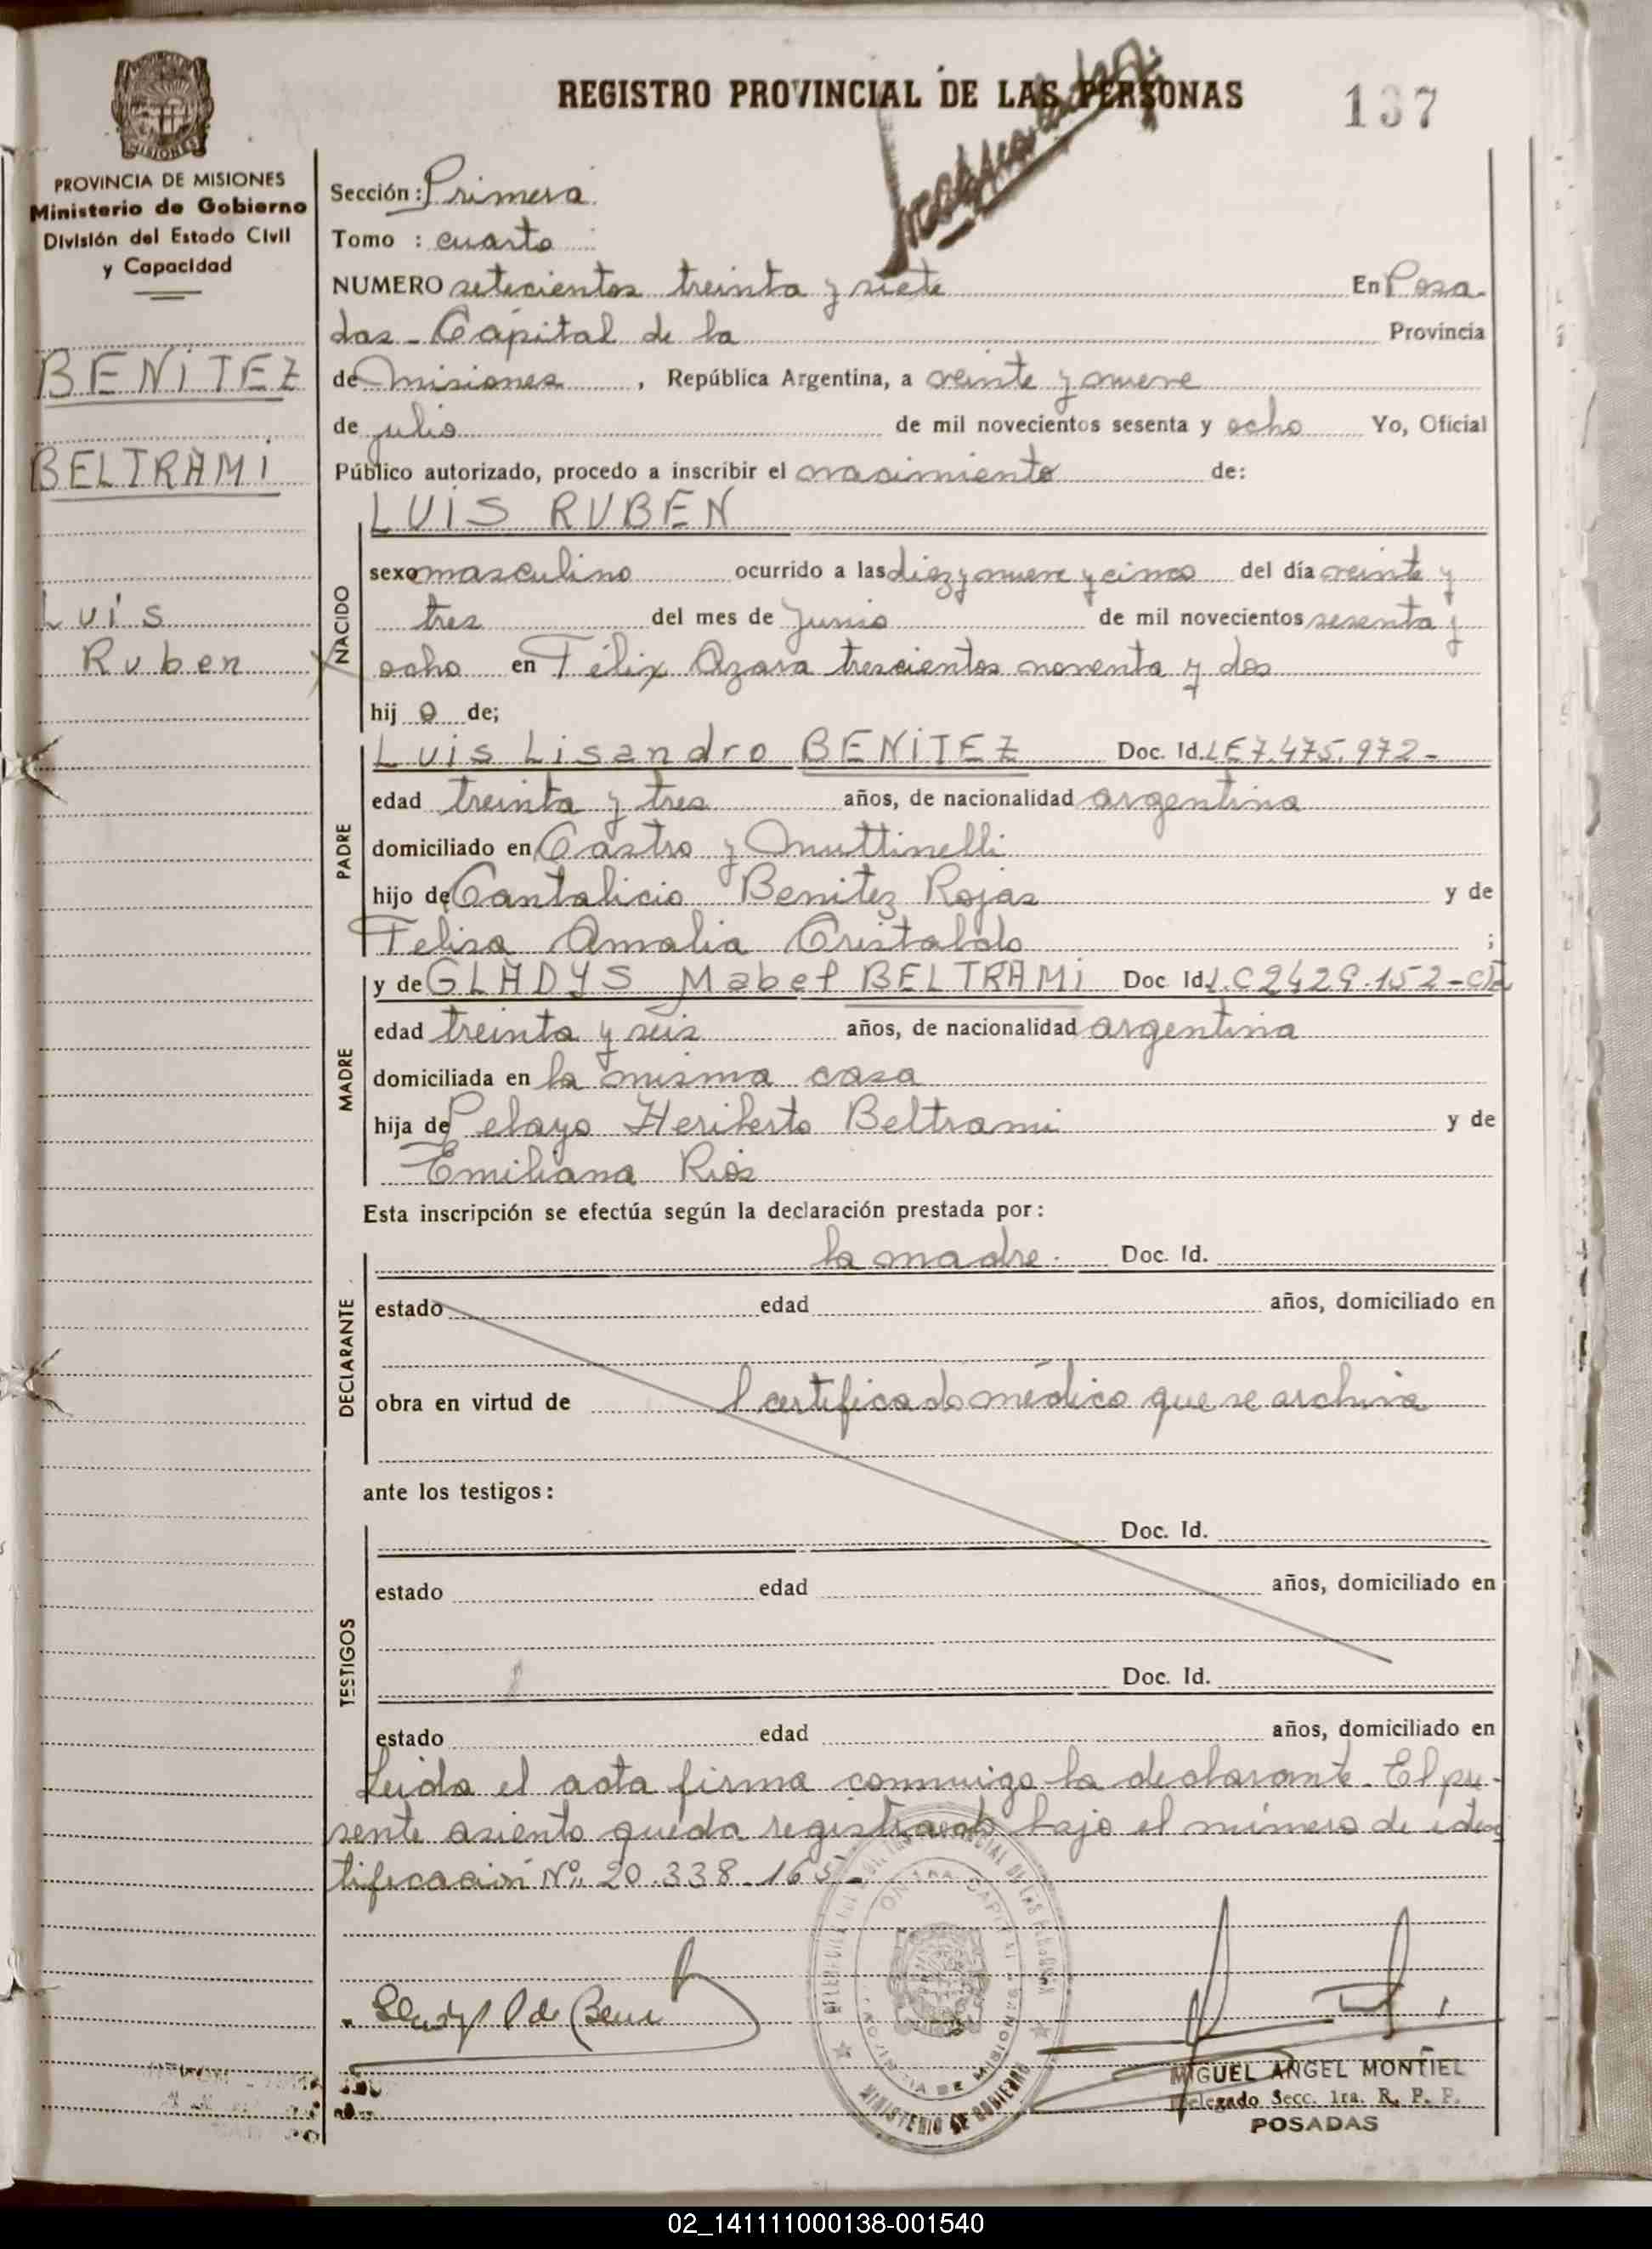 REGISTRO PROVINCIAL DE LAS PERSONAS
137
MISIONES
PROVINCIA DE MISIONES
Ministerio de Gobierno
División del Estado Civil
y Capacidad
BENITEZ
BELTRAMI
Luis
Ruben
Sección: Primera
Tomo : cuarto
NUMERO setecientos treinta y siete En Posa-
das - Capital de la Provincia
de Misiones, República Argentina, a veinte y nueve
de julio de mil novecientos sesenta y ocho Yo, Oficial
Público autorizado, procedo a inscribir el nacimiento de:
LUIS RUBEN
NACIDO
sexo masculino ocurrido a las diez y nueve y cinco del día veinte y
tres del mes de Junio de mil novecientos sesenta y
ocho en Félix Azara trescientos noventa y dos
hij o de;
PADRE
Luis Lisandro BENITEZ Doc. Id. LE 7.475.972-
edad treinta y tres años, de nacionalidad argentina
domiciliado en Castro y Muttinelli
hijo de Cantalicio Benitez Rojas y de
Felisa Amalia Cristaldo ;
MADRE
y de GLADYS Mabel BELTRAMI Doc Id L.C 2429.152-
edad treinta y seis años, de nacionalidad argentina
domiciliada en la misma casa
hija de Pelayo Heriberto Beltrami y de
Emiliana Rios
Esta inscripción se efectúa según la declaración prestada por:
DECLARANTE
la madre. Doc. Id.
estado edad años, domiciliado en
obra en virtud de l certificado médico que se archiva
ante los testigos:
TESTIGOS
Doc. Id.
estado edad años, domiciliado en
Doc. Id.
estado edad años, domiciliado en
Leida el acta firma conmigo la declarante. El pre-
sente asiento queda registrado bajo el número de iden
tificación Nº. 20.338.165-
MINISTERIO DE GOBIERNO
MIGUEL ANGEL MONTIEL
Delegado Secc. 1ra. R. P. P.
POSADAS
02_141111000138-001540